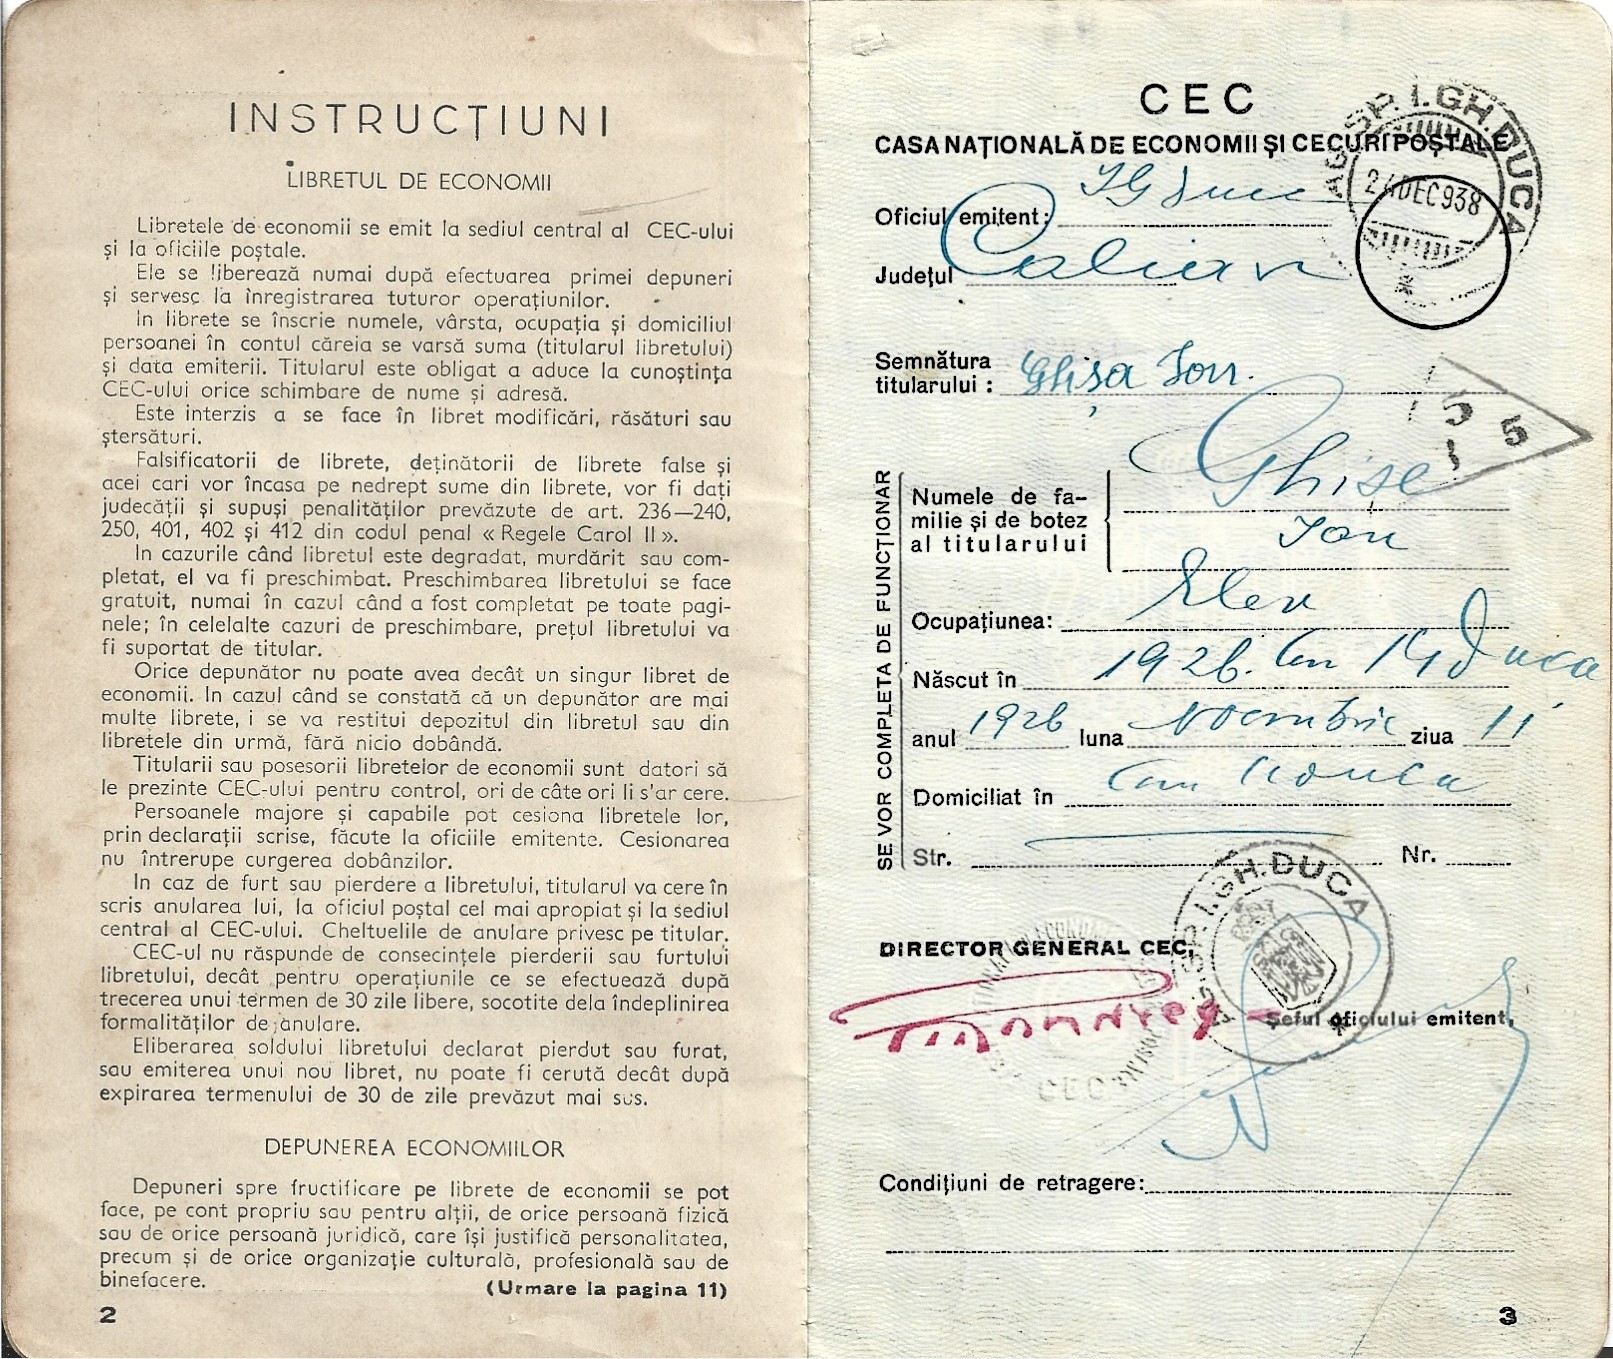 INSTRUCȚIUNI
LIBRETUL DE ECONOMII
Libretele de economii se emit la sediul central al CEC-ului
și la oficiile poștale.
Ele se liberează numai după efectuarea primei depuneri
și servesc la înregistrarea tuturor operațiunilor.
In librete se înscrie numele, vârsta, ocupația și domiciliul
persoanei în contul căreia se varsă suma (titularul libretului)
și data emiterii. Titularul este obligat a aduce la cunoștința
CEC-ului orice schimbare de nume și adresă.
Este interzis a se face în libret modificări, răsături sau
ștersături.
Falsificatorii de librete, deținătorii de librete false și
acei cari vor încasa pe nedrept sume din librete, vor fi dați
judecății și supuși penalităților prevăzute de art. 236—240,
250, 401, 402 și 412 din codul penal « Regele Carol II ».
In cazurile când libretul este degradat, murdărit sau com-
pletat, el va fi preschimbat. Preschimbarea libretului se face
gratuit, numai în cazul când a fost completat pe toate pagi-
nele; în celelalte cazuri de preschimbare, prețul libretului va
fi suportat de titular.
Orice depunător nu poate avea decât un singur libret de
economii. In cazul când se constată că un depunător are mai
multe librete, i se va restitui depozitul din libretul sau din
libretele din urmă, fără nicio dobândă.
Titularii sau posesorii libretelor de economii sunt datori să
le prezinte CEC-ului pentru control, ori de câte ori li s'ar cere.
Persoanele majore și capabile pot cesiona libretele lor,
prin declarații scrise, făcute la oficiile emitente. Cesionarea
nu întrerupe curgerea dobânzilor.
In caz de furt sau pierdere a libretului, titularul va cere în
scris anularea lui, la oficiul poștal cel mai apropiat și la sediul
central al CEC-ului. Cheltuelile de anulare privesc pe titular.
CEC-ul nu răspunde de consecințele pierderii sau furtului
libretului, decât pentru operațiunile ce se efectuează după
trecerea unui termen de 30 zile libere, socotite dela îndeplinirea
formalităților de anulare.
Eliberarea soldului libretului declarat pierdut sau furat,
sau emiterea unui nou libret, nu poate fi cerută decât după
expirarea termenului de 30 de zile prevăzut mai sus.
DEPUNEREA ECONOMIILOR
Depuneri spre fructificare pe librete de economii se pot
face, pe cont propriu sau pentru alții, de orice persoană fizică
sau de orice persoană juridică, care își justifică personalitatea,
precum și de orice organizație culturală, profesională sau de
binefacere.
(Urmare la pagina 11)
2
CEC
CASA NAȚIONALĂ DE ECONOMII ȘI CECURI POȘTALE
AG. SP. I. GH. DUCA
DEC 938
Oficiul emitent: IG Duca
Județul
Semnătura
titularului : Ghișa Ion.
SE VOR COMPLETA DE FUNCȚIONAR
Numele de fa-
milie și de botez
al titularului
Ghișe
Ion
Ocupațiunea: Elev
Născut în 1926. Com IG Duca
anul 1926 luna Noembrie ziua 11
Domiciliat în Com
Str. Nr.
AG. SP. I. GH. DUCA
DIRECTOR GENERAL CEC,
Șeful oficiului emitent,
CEC
Condițiuni de retragere:
3